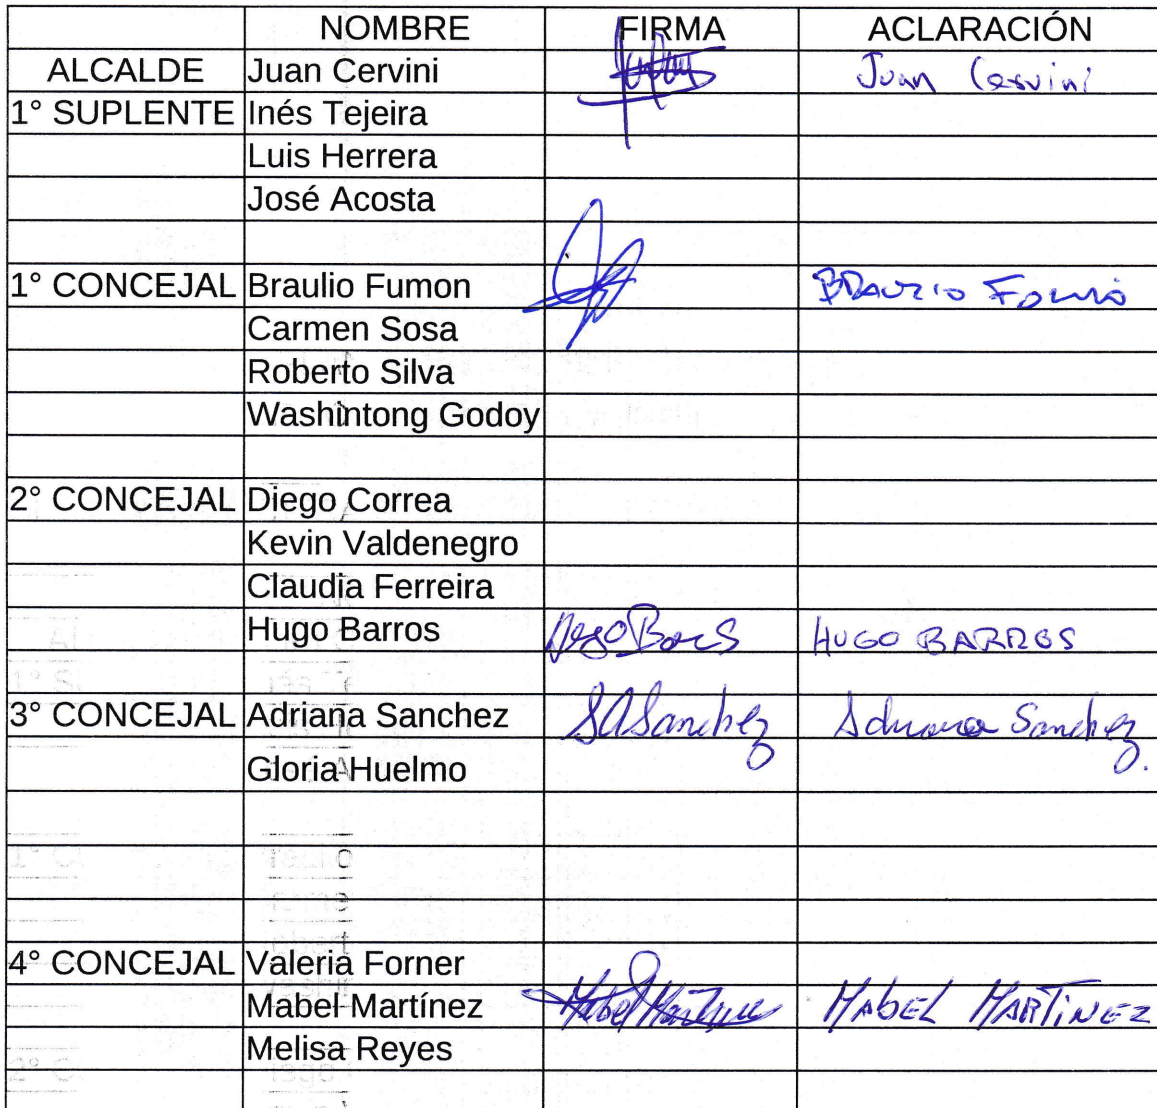 NOMBRE FIRMA ACLARACIÓN
ALCALDE Juan Cervini Juan Cervini
1° SUPLENTE Inés Tejeira
Luis Herrera
José Acosta
1° CONCEJAL Braulio Fumon BRAULIO
Carmen Sosa
Roberto Silva
Washintong Godoy
2° CONCEJAL Diego Correa
Kevin Valdenegro
Claudia Ferreira
Hugo Barros HUGO BARROS
3° CONCEJAL Adriana Sanchez SASanchez Adriana Sanchez.
Gloria Huelmo
4° CONCEJAL Valeria Forner
Mabel Martínez Mabel Martinez MABEL MARTINEZ
Melisa Reyes